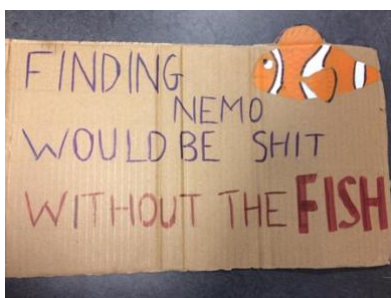 FINDING
NEMO
WOULD BE SHIT
WITHOUT THE FISH